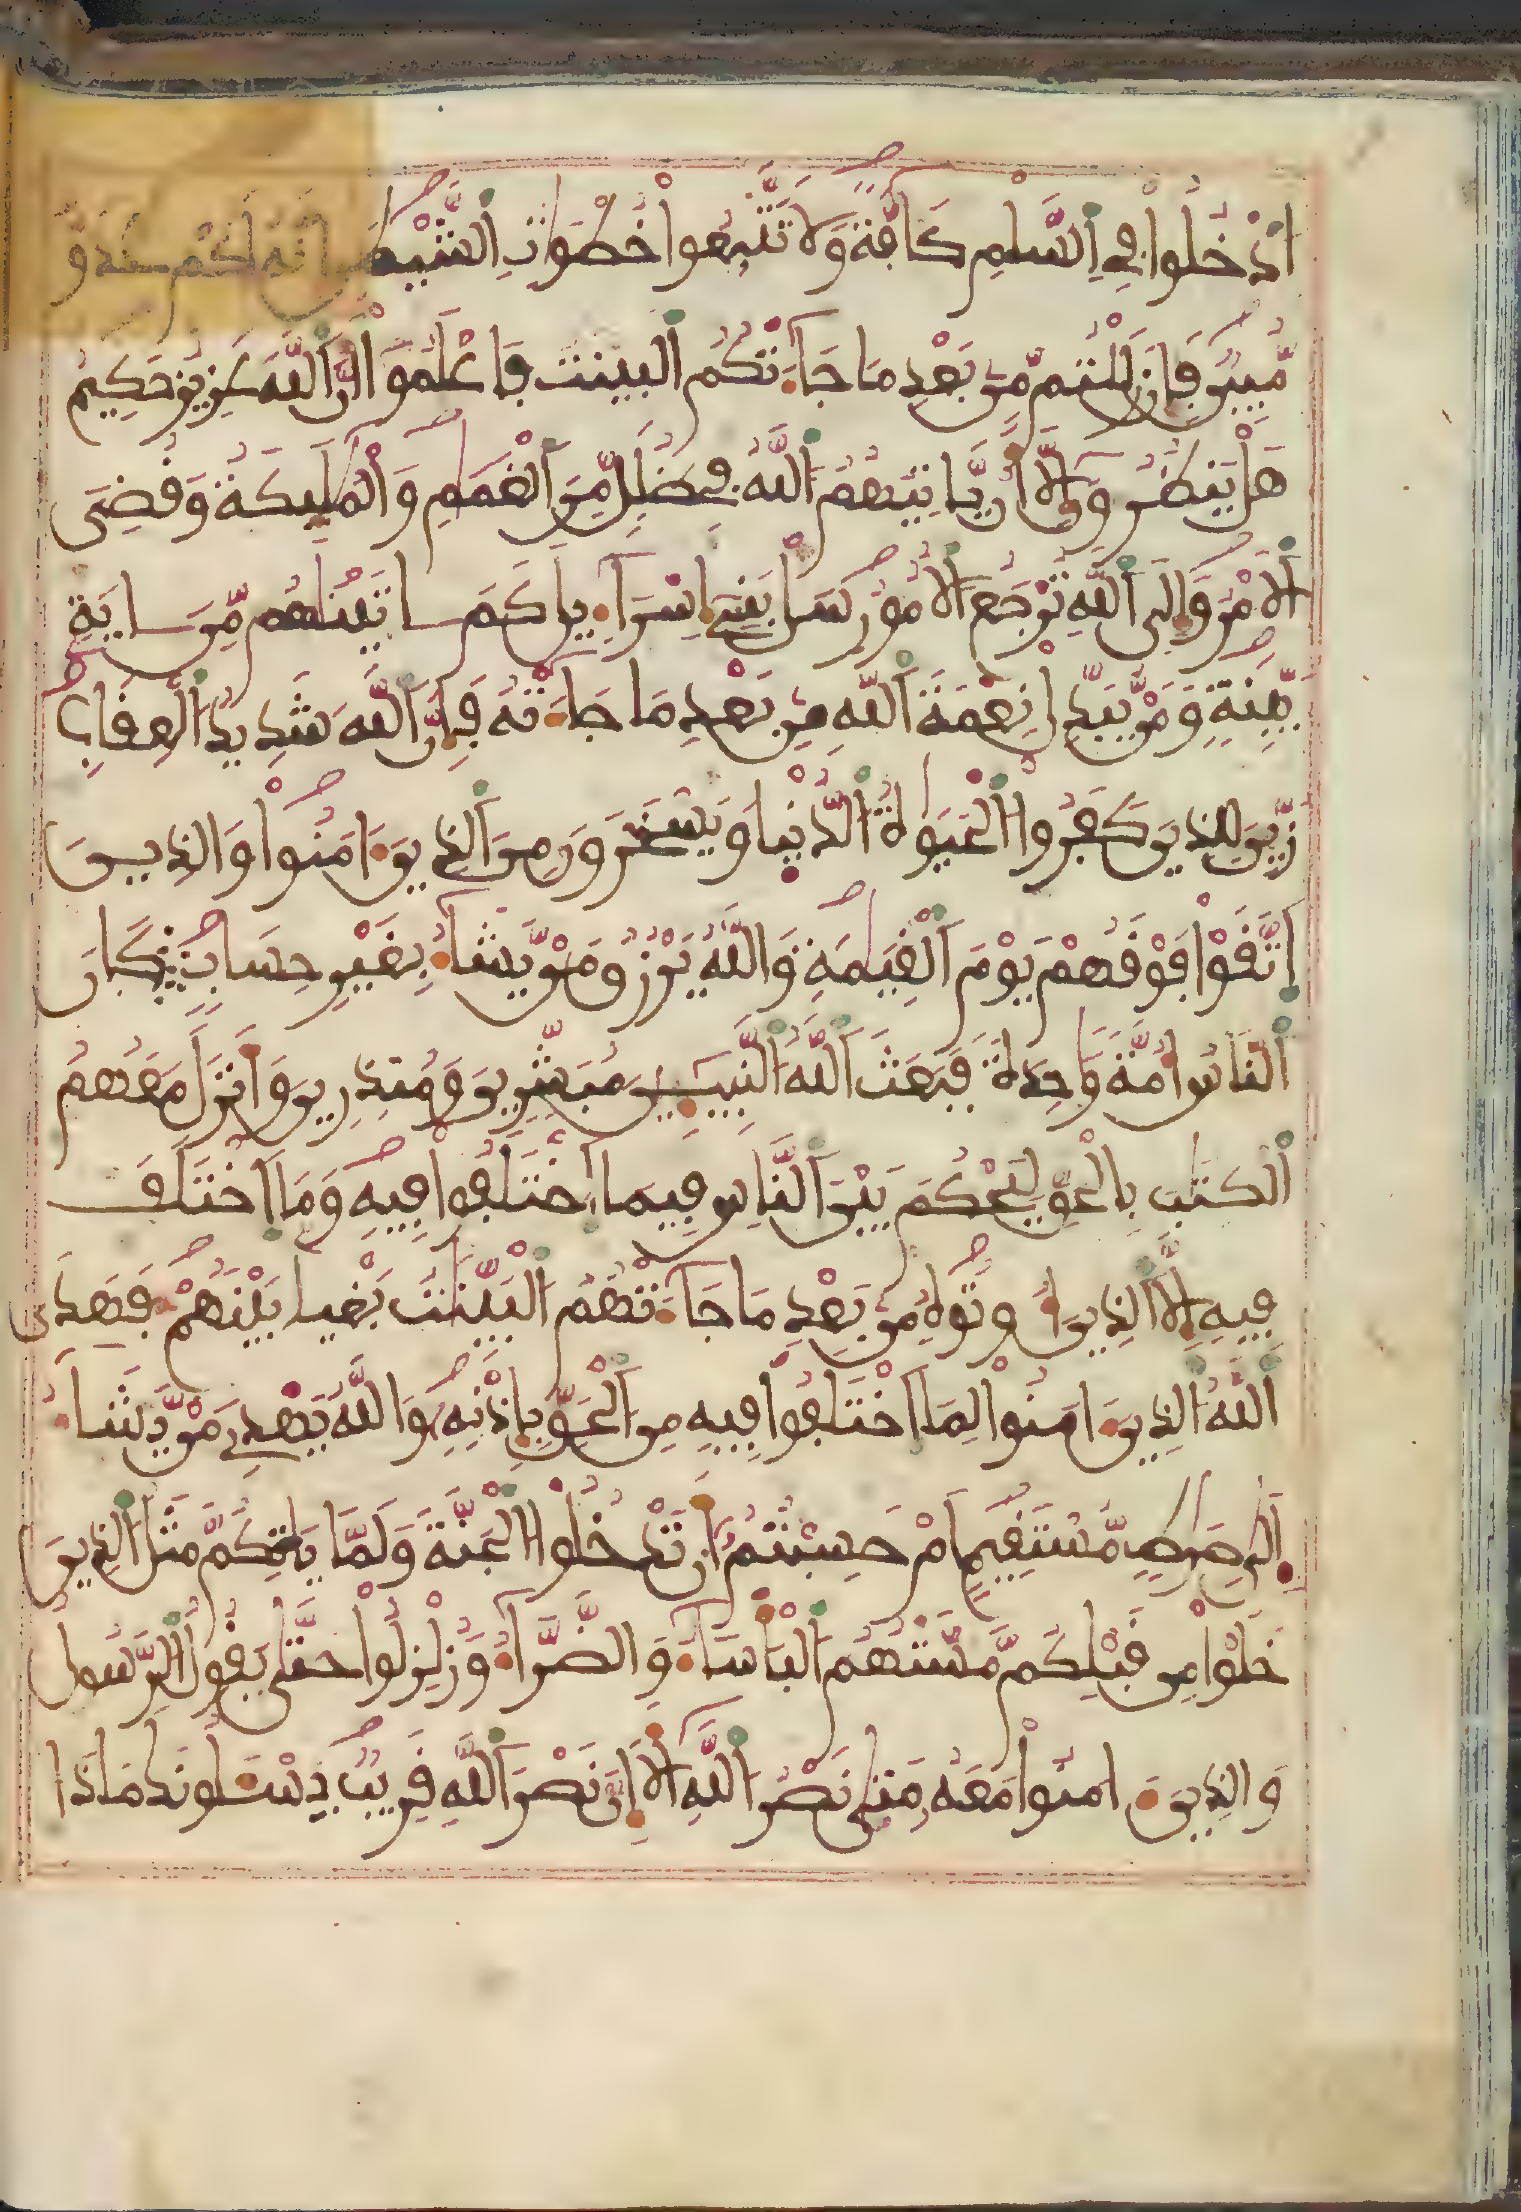 ادْخُلُواْ فِي اِ۬لسَّلْمِ كَآفَّةٗ وَلَا تَتَّبِعُواْ خُطْوَٰتِ اِ۬لشَّيْطَٰنِ إِنَّهُۥ لَكُمْ عَدُوّٞ
مُّبِينٞ فَإِن زَلَلْتُم مِّنۢ بَعْدِ مَا جَآءَتْكُمُ اُ۬لْبَيِّنَٰتُ فَاعْلَمُوٓاْ أَنَّ اَ۬للَّهَ عَزِيزٌ حَكِيمٌ
هَلْ يَنظُرُونَ إِلَّآ أَنْ يَّاتِيَهُمُ اُ۬للَّهُ فِي ظُلَلٖ مِّنَ اَ۬لْغَمَٰمِ وَالْمَلَٰٓئِكَةُ وَقُضِيَ
اَ۬لَامْرُ وَإِلَى اَ۬للَّهِ تُرْجَعُ اُ۬لُامُورُ سَلْ بَنِےٓ إِسْرَآءِيلَ كَمَ اٰتَيْنَٰهُم مِّنَ اٰيَةِۢ
بَيِّنَةٖ وَمَنْ يُّبَدِّلْ نِعْمَةَ اَ۬للَّهِ مِنۢ بَعْدِ مَا جَآءَتْهُ فَإِنَّ اَ۬للَّهَ شَدِيدُ اُ۬لْعِقَابِ
زُيِّنَ لِلذِينَ كَفَرُواْ اُ۬لْحَيَوٰةُ اُ۬لدُّنْيَا وَيَسْخَرُونَ مِنَ اَ۬لذِينَ ءَامَنُواْ وَالذِينَ
اَ۪تَّقَوْاْ فَوْقَهُمْ يَوْمَ اَ۬لْقِيَٰمَةِ وَاللَّهُ يَرْزُقُ مَنْ يَّشَآءُ بِغَيْرِ حِسَابٖ كَانَ
اَ۬لنَّاسُ أُمَّةٗ وَٰحِدَةٗ فَبَعَثَ اَ۬للَّهُ اُ۬لنَّبِيٓـِٕينَ مُبَشِّرِينَ وَمُنذِرِينَ وَأَنزَلَ مَعَهُمُ
اُ۬لْكِتَٰبَ بِالْحَقِّ لِيَحْكُمَ بَيْنَ اَ۬لنَّاسِ فِيمَا اَ۪خْتَلَفُواْ فِيهِ وَمَا اَ۪خْتَلَفَ
فِيهِ إِلَّا اَ۬لذِينَ أُوتُوهُ مِنۢ بَعْدِ مَا جَآءَتْهُمُ اُ۬لْبَيِّنَٰتُ بَغْياَۢ بَيْنَهُمْ فَهَدَى
اَ۬للَّهُ اُ۬لذِينَ ءَامَنُواْ لِمَا اَ۪خْتَلَفُواْ فِيهِ مِنَ اَ۬لْحَقِّ بِإِذْنِهِۦ وَاللَّهُ يَهْدِے مَنْ يَّشَآءُ
اِ۪لَىٰ صِرَٰطٖ مُّسْتَقِيمٍ اَمْ حَسِبْتُمُۥٓ أَن تَدْخُلُواْ اُ۬لْجَنَّةَ وَلَمَّا يَاتِكُم مَّثَلُ اُ۬لذِينَ
خَلَوْاْ مِن قَبْلِكُم مَّسَّتْهُمُ اُ۬لْبَأْسَآءُ وَالضَّرَّآءُ وَزُلْزِلُواْ حَتَّىٰ يَقُولُ اُ۬لرَّسُولُ
وَالذِينَ ءَامَنُواْ مَعَهُۥ مَتَىٰ نَصْرُ اُ۬للَّهِ أَلَآ إِنَّ نَصْرَ اَ۬للَّهِ قَرِيبٞ يَسْـَٔلُونَكَ مَاذَا